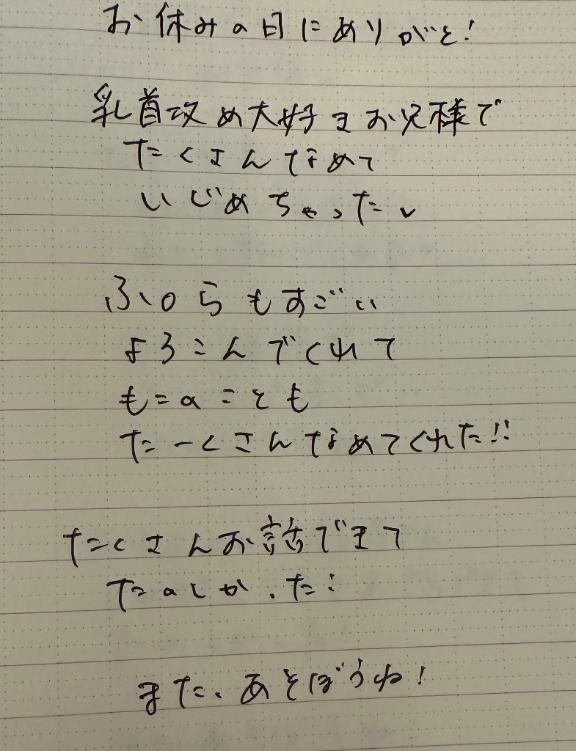 お休みの日にありがと!
乳首攻め大好きお兄様で
たくさんなめて
いじめちゃった
ふぃらもすごい
よろこんでくれて
も=のことも
たーくさんなめてくれた!!
たくさんお話できて
たのしかった!
また、あそぼうね!